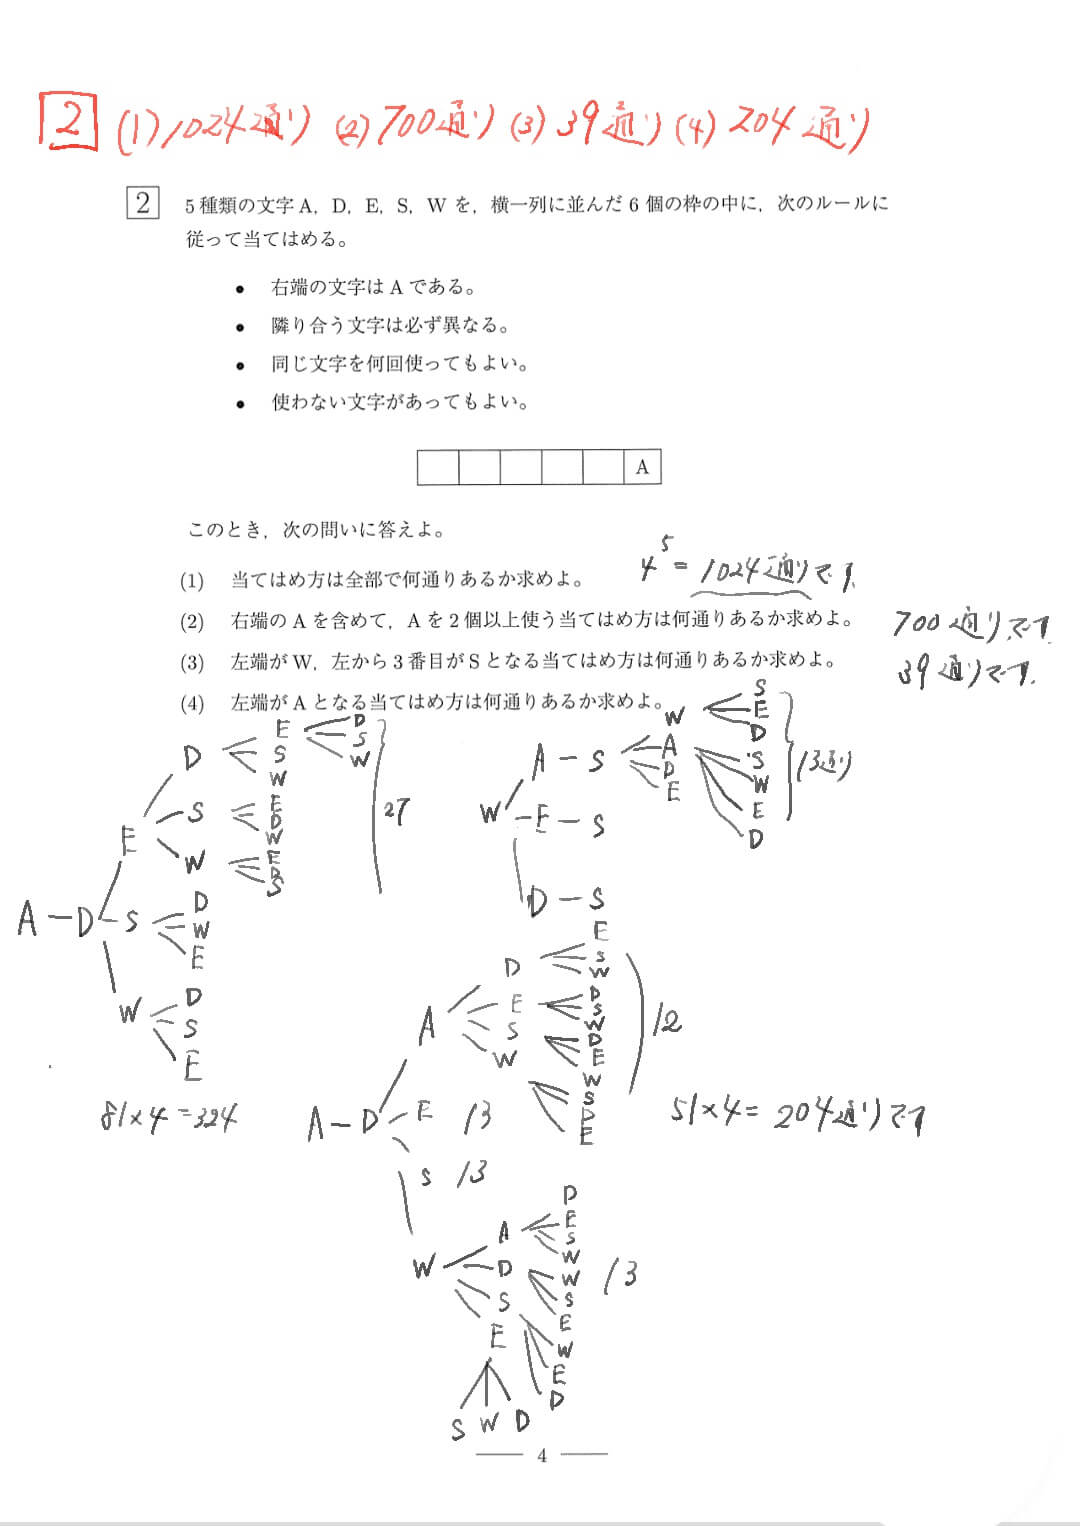 2 (1) 1024通り (2) 700通り (3) 39通り (4) 204通り
2 5種類の文字A, D, E, S, Wを, 横一列に並んだ6個の枠の中に, 次のルールに
従って当てはめる。
● 右端の文字はAである。
● 隣り合う文字は必ず異なる。
● 同じ文字を何回使ってもよい。
● 使わない文字があってもよい。
A
このとき, 次の問いに答えよ。
(1) 当てはめ方は全部で何通りあるか求めよ。 4^5 = 1024通りです.
(2) 右端のAを含めて, Aを2個以上使う当てはめ方は何通りあるか求めよ。 700通りです.
(3) 左端がW, 左から3番目がSとなる当てはめ方は何通りあるか求めよ。 39通りです.
(4) 左端がAとなる当てはめ方は何通りあるか求めよ。
A - D
E
D
E
D
S
W
S
W
S
E
D
W
W
E
D
S
27
S
D
W
E
W
D
S
E
81×4=324
W
A - S
W
S
E
D
A
S
W
E
D
D
E
13通り
E - S
D - S
A - D
A
D
E
S
W
E
D
S
W
S
D
E
W
W
S
D
E
12
E 13
S 13
W
A
D
E
S
W
D
W
S
E
S
W
E
D
E
S W D
13
51×4= 204通りです
4